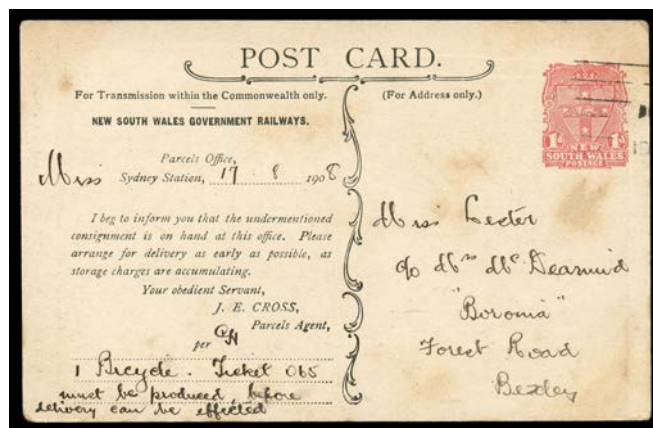 POST CARD.
For Transmission within the Commonwealth only.
(For Address only.)
NEW SOUTH WALES GOVERNMENT RAILWAYS.
Parcels Office,
Miss Sydney Station, 17. 8 1908
I beg to inform you that the undermentioned
consignment is on hand at this office. Please
arrange for delivery as early as possible, as
storage charges are accumulating.
Your obedient Servant,
J. E. CROSS,
Parcels Agent,
per
1 Bicycle. Ticket 065
must be produced before
delivery can be effected
1d 1d
NEW
SOUTH WALES
POSTAGE
Miss Lester
c/o Mrs
"Boronia"
Forest Road
Bexley